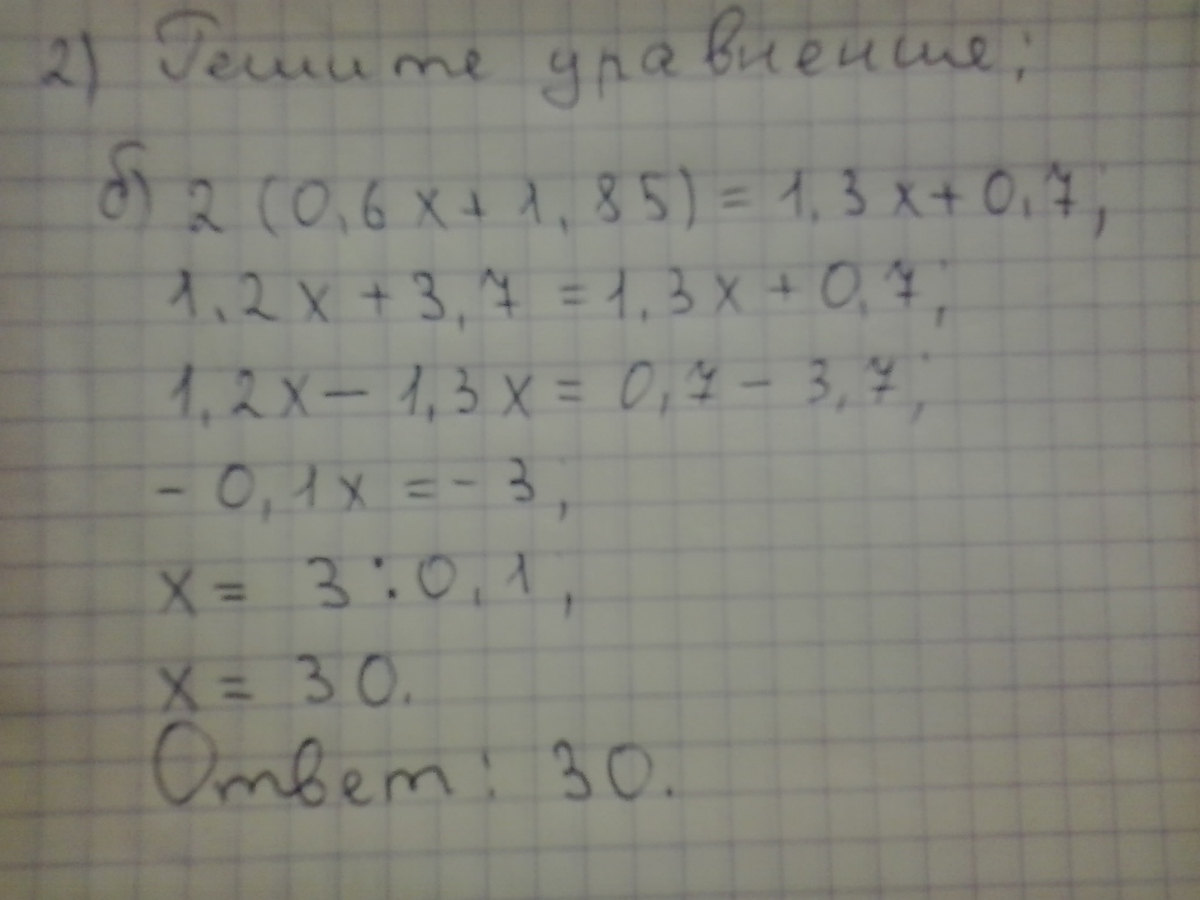 2) Решите уравнение:
б) 2 (0,6x + 1,85) = 1,3x + 0,7;
1,2x + 3,7 = 1,3x + 0,7;
1,2x - 1,3x = 0,7 - 3,7;
- 0,1x = - 3;
x = 3 : 0,1;
x = 30.
Ответ: 30.